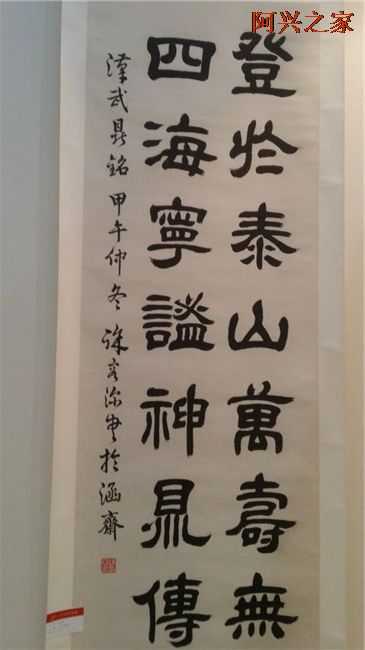 阿兴之家
登於泰山萬壽無
四海寧謐神鼎傳
漢武鼎銘 甲午仲冬 徐 於涵齋